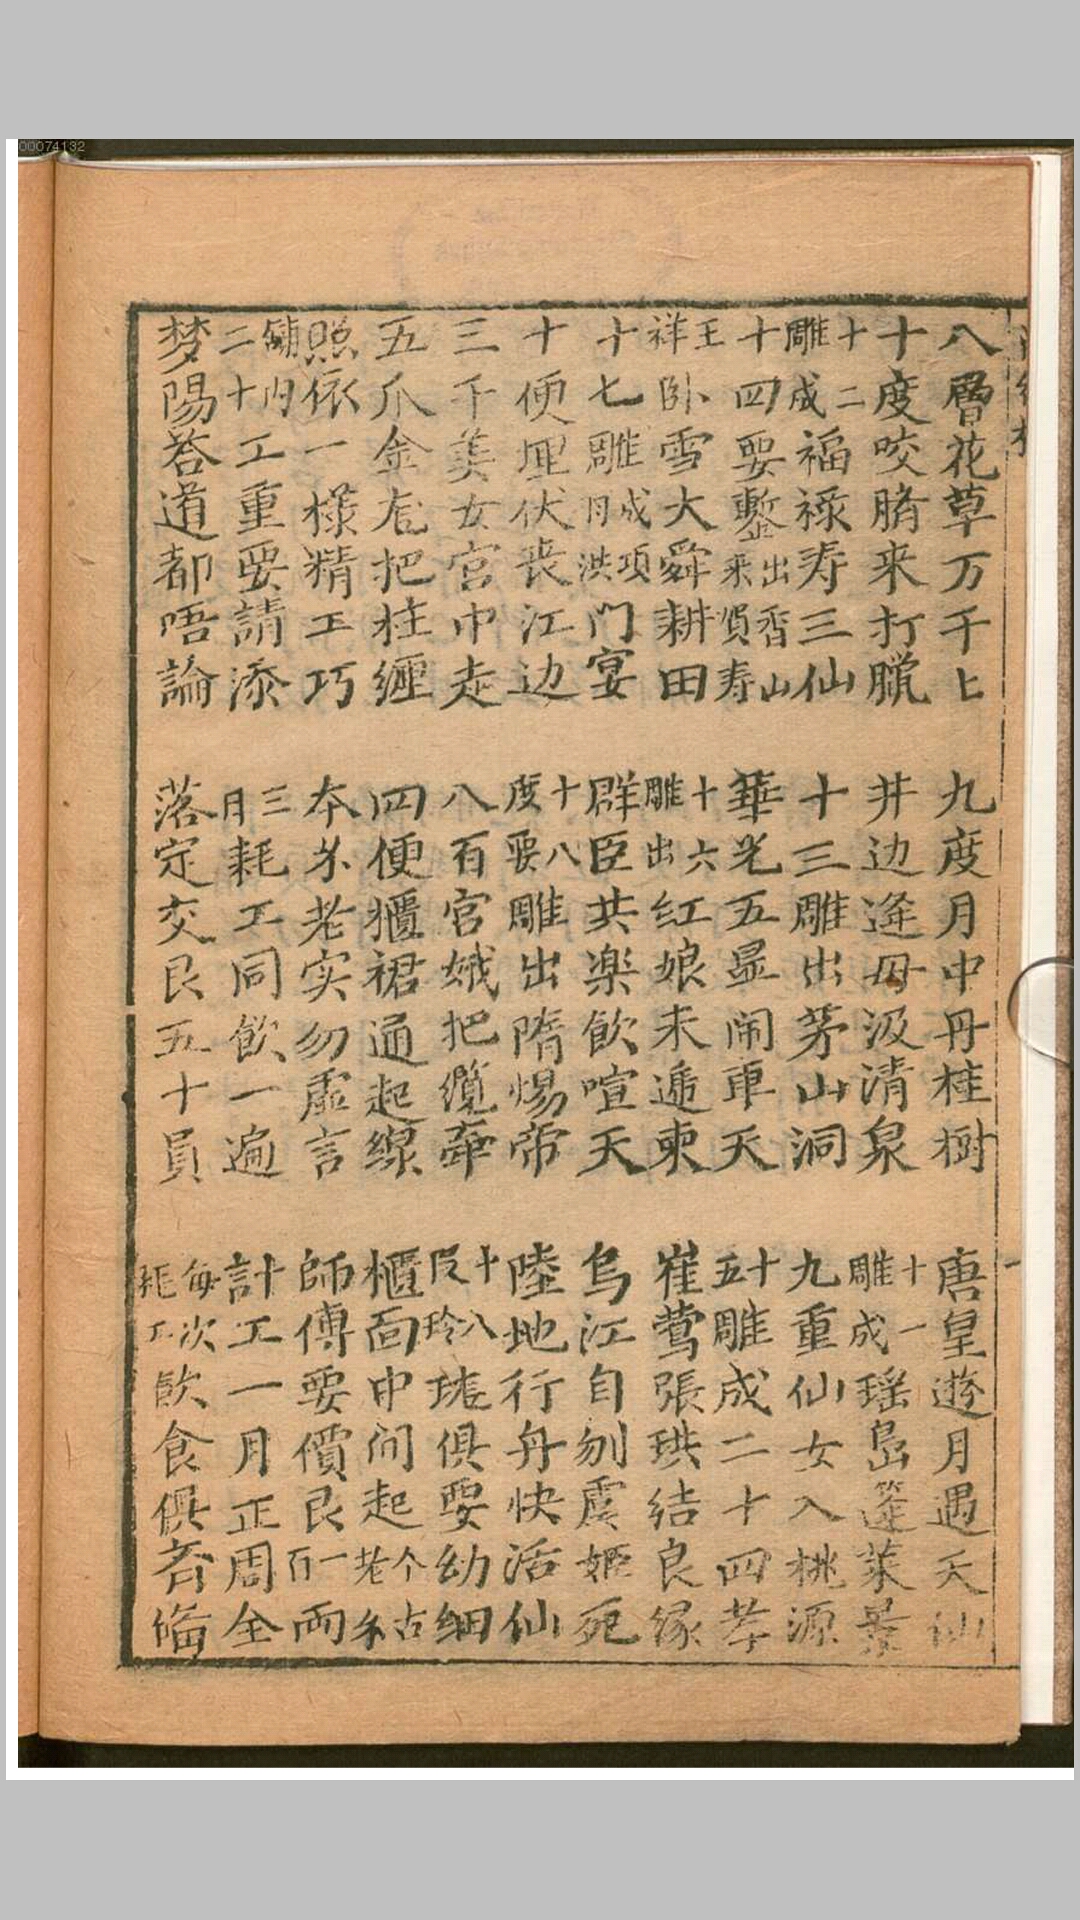 八層花草万千上 九度月中丹桂樹 唐皇遊月遇天仙
十度咬臍来打臘 井边逢母汲清泉 十一雕成瑶島蓬莱景
十二雕成福禄寿三仙 十三雕出茅山洞 九重仙女入桃源
十四要鑿出香山来賀寿 華光五显闹車天 十五雕成二十四孝
王祥卧雪大舜耕田 十六雕出红娘未遞柬 崔莺張珙結良缘
十七雕成項月洪门宴 群臣共楽飲喧天 烏江自刎虞姬死
十便埋伏丧江边 十八度要雕出隋惕帝 陸地行舟快活仙
三千美女宫中走 八百宫娥把纜牵 十八反玲珑俱要幼细
五爪金龙把柱缠 四便櫃裙通起線 櫃面中间起个古老糸
照依一樣精工巧 本求老实勿虚言 師傅要價艮一百両
舖内二十工重要請添 三月耗工同飲一遍 計工一月正周全
梦陽答道都唔論 落定交艮五十員 每次耗工飲食俱